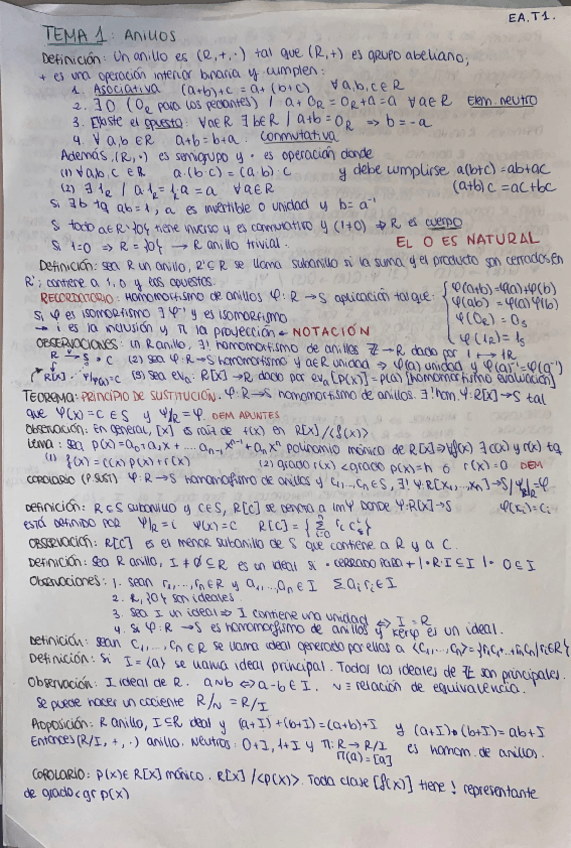 EA.T1.
TEMA 1: ANILLOS
Definición: Un anillo es (R,+,·) tal que (R,+) es grupo abeliano,
+ es una operación interior binaria y cumplen:
1. Asociativa (a+b)+c = a+(b+c) ∀a,b,c∈R
2. ∃0 (0_R para los pedantes) / a+0_R = 0_R+a = a ∀a∈R Elem. neutro
3. Existe el opuesto: ∀a∈R ∃b∈R / a+b = 0_R ⇒ b = -a
4. ∀a,b∈R a+b = b+a. Conmutativa
Además, (R,·) es semigrupo y · es operación donde
(1) ∀a,b,c∈R a·(b·c) = (a·b)·c y debe cumplirse a(b+c) = ab+ac
(2) ∃1_R / a·1_R = 1_R·a = a ∀a∈R (a+b)c = ac+bc
Si ∃b tq ab=1, a es invertible o unidad y b = a⁻¹
Si todo a∈R\{0} tiene inverso y es conmutativo y (1≠0) ⇒ R es cuerpo
Si 1=0 ⇒ R={0} → R anillo trivial. EL 0 ES NATURAL
Definición: sea R un anillo, R'⊆R se llama subanillo si la suma y el producto son cerrados en
R'; contiene a 1, 0 y los opuestos.
RECORDATORIO: Homomorfismo de anillos φ: R→S aplicación tal que: { φ(a+b)=φ(a)+φ(b)
Si φ es isomorfismo ∃φ⁻¹ y es isomorfismo φ(ab) = φ(a)φ(b)
→ i es la inclusión y π la proyección ← NOTACIÓN φ(0_R) = 0_S
φ(1_R) = 1_S
OBSERVACIONES: (1) R anillo, ∃! homomorfismo de anillos ℤ→R dado por 1→1_R
R → S ∋ C (2) sea φ: R→S homomorfismo y a∈R unidad ⇒ φ(a) unidad y φ(a)⁻¹=φ(a⁻¹)
R[x] (3) sea ev_a: R[x]→R dado por ev_a[p(x)] = p(a) [homomorfismo evaluación]
TEOREMA: PRINCIPIO DE SUSTITUCIÓN. φ: R→S homomorfismo de anillos. ∃! hom. ψ: R[x]→S tal
que ψ(x)=c∈S y ψ/R = φ. DEM APUNTES
Observación: En general, [x] es raíz de f(x) en R[x]/<f(x)>
Lema: sea p(x)=a₀+a₁x+...a_{n-1}xⁿ⁻¹+a_n xⁿ polinomio mónico de R[x] ⇒ ∀f(x) ∃c(x) y r(x) tq
(1) f(x) = c(x)p(x)+r(x) (2) grado r(x) < grado p(x)=n ó r(x)=0 DEM
COROLARIO (P. SUST) φ: R→S homomorfismo de anillos y c₁,...,c_n∈S, ∃! ψ: R[x₁,...,x_n]→S / ψ/R=φ
ψ(x_i)=c_i
Definición: R⊆S subanillo y c∈S, R[c] se denota a im ψ donde ψ: R[x]→S
está definido por ψ/R = i ψ(x)=c R[c] = {Σ r_i c^i}
OBSERVACIÓN: R[c] es el menor subanillo de S que contiene a R y a c.
Definición: sea R anillo, I≠∅⊆R es un ideal si • cerrado para + | • R·I⊆I | • 0∈I
Observaciones: 1. sean r₁,...,r_n∈R y a₁,...,a_n∈I Σa_i r_i∈I
2. R, {0} son ideales
3. sea I un ideal ⇒ I contiene una unidad ⇔ I=R
4. si φ: R→S es homomorfismo de anillos y kerφ es un ideal.
Definición: sean c₁,...,c_n∈R se llama ideal generado por ellos a <c₁,...,c_n> = {r₁c₁+...+r_nc_n / r_i∈R}
Definición: Si I=<a> se llama ideal principal. Todos los ideales de ℤ son principales.
Observación: I ideal de R. a∼b ⇔ a-b∈I. ∼ ≡ relación de equivalencia.
Se puede hacer un cociente R/∼ = R/I
Proposición: R anillo, I⊆R ideal y (a+I)+(b+I) = (a+b)+I y (a+I)·(b+I) = ab+I
Entonces (R/I,+,·) anillo. Neutros: 0+I, 1+I y π: R→R/I es homom. de anillos.
π(a)=[a]
COROLARIO: p(x)∈R[x] mónico. R[x]/<p(x)>. Toda clase [f(x)] tiene ! representante
de grado<gr p(x)